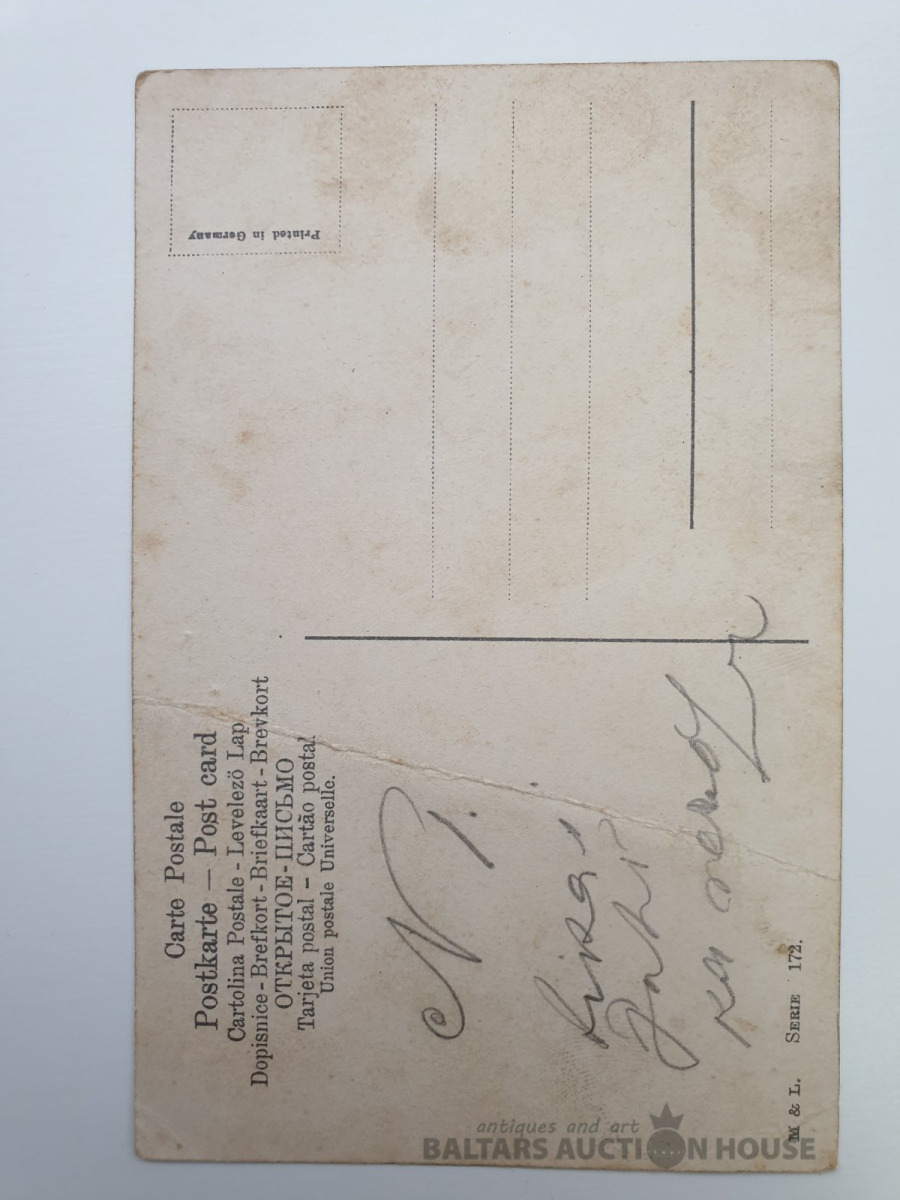 Carte Postale
Postkarte — Post card
Cartolina Postale - Levelező Lap
Dopisnice - Brefkort - Briefkaart - Brevkort
ОТКРЫТОЕ-ПИСЬМО
Tarjeta postal – Cartão postal
Union postale Universelle.
Printed in Germany
N 1.
M & L. SERIE 172.
antiques and art
BALTARS AUCTION HOUSE